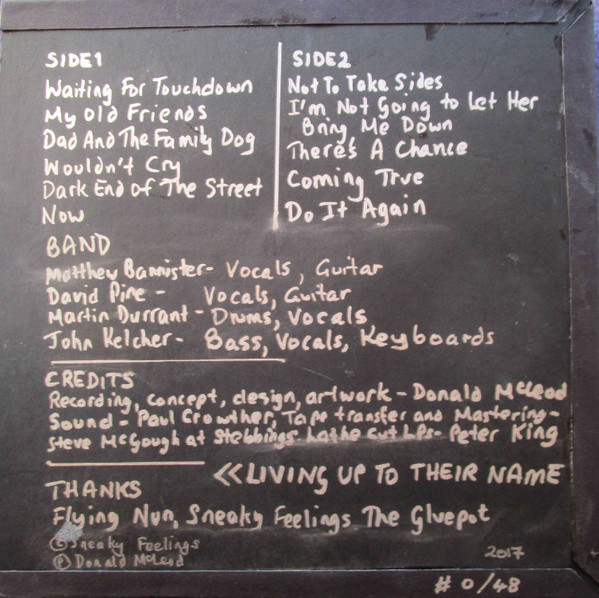 SIDE 1
Waiting For Touchdown
My Old Friends
Dad And The Family Dog
Wouldn't Cry
Dark End Of The Street
Now
SIDE 2
Not To Take Sides
I'm Not Going to Let Her
Bring Me Down
There's A Chance
Coming True
Do It Again
BAND
Matthew Bannister - Vocals, Guitar
David Pine - Vocals, Guitar
Martin Durrant - Drums, Vocals
John Kelcher - Bass, Vocals, Keyboards
CREDITS
Recording, concept, design, artwork - Donald McLeod
Sound - Paul Crowther, Tape transfer and Mastering -
Steve McGough at Stebbings Lathe Cut LPs - Peter King
<<LIVING UP TO THEIR NAME
THANKS
Flying Nun, Sneaky Feelings The Gluepot
© Sneaky Feelings
℗ Donald McLeod
2017
# 0/48